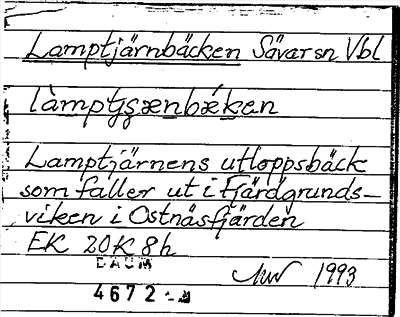 Lamptjärnbäcken Sävar sn Vbl
làmptʂænbǽken
Lamptjärnens utloppsbäck
som faller ut i Fjärdgrunds-
viken i Ostnäsfjärden
EK 20K 8h
DAUM
1993
4672